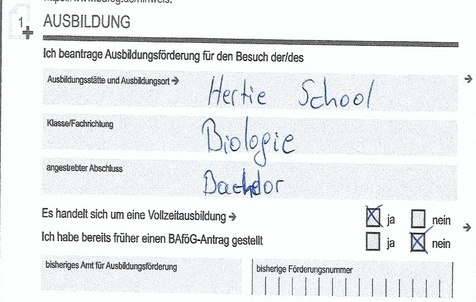 1 AUSBILDUNG
Ich beantrage Ausbildungsförderung für den Besuch der/des
Ausbildungsstätte und Ausbildungsort → Hertie School
Klasse/Fachrichtung Biologie
angestrebter Abschluss Bachelor
Es handelt sich um eine Vollzeitausbildung → ☒ ja ☐ nein
Ich habe bereits früher einen BAföG-Antrag gestellt ☐ ja ☒ nein
bisheriges Amt für Ausbildungsförderung bisherige Förderungsnummer